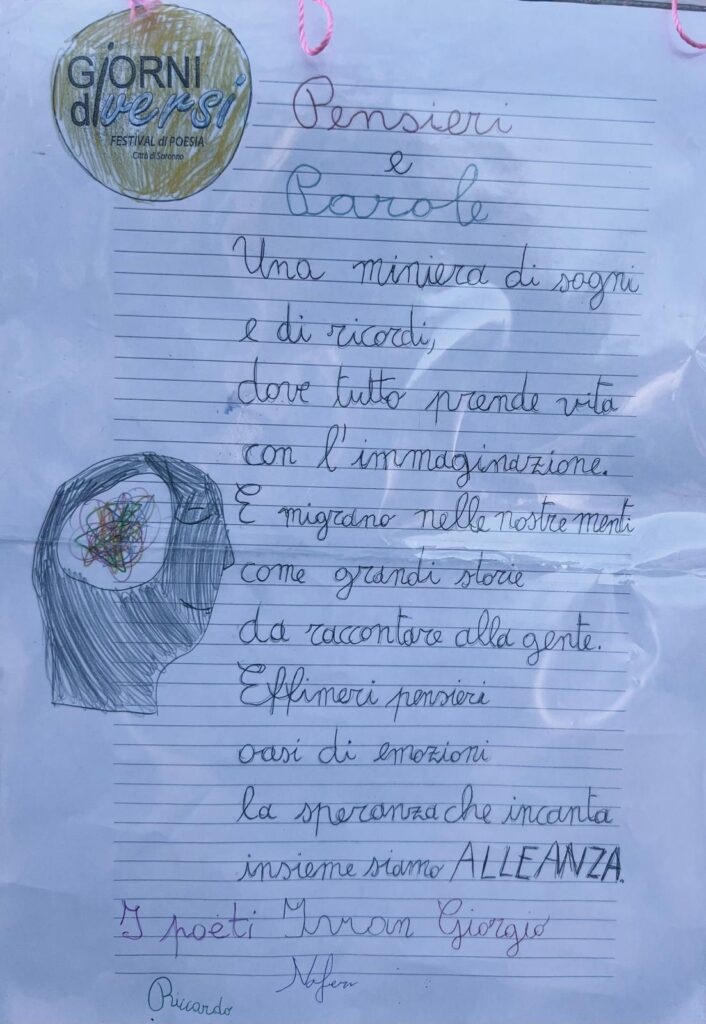 GiORNI
diversi
FESTIVAL di POESIA
Città di Saronno
Pensieri
e
Parole
Una miniera di sogni
e di ricordi,
dove tutto prende vita
con l'immaginazione.
E migrano nelle nostre menti
come grandi storie
da raccontare alla gente.
Effimeri pensieri
oasi di emozioni
la speranza che incanta
insieme siamo ALLEANZA.
I poeti Ivan Giorgio
Riccardo